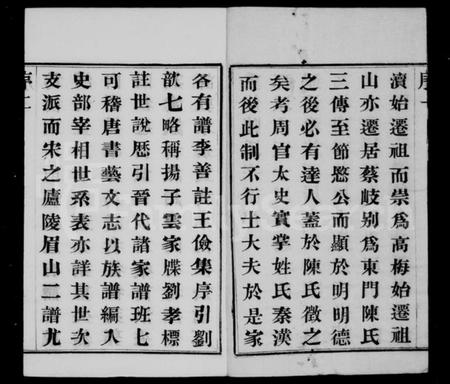 序一
瀆始遷祖而崇爲高梅始遷祖
山亦遷居蔡岐别爲東門陳氏
三傳至節愍公而顯於明明德
之後必有達人蓋於陳氏徵之
矣考周官太史實掌姓氏秦漢
而後此制不行士大夫於是家
各有譜李善註王儉集序引劉
歆七略稱揚子雲家牒劉孝標
註世說歴引晉代諸家譜班七
可稽唐書藝文志以族譜編入
史部宰相世系表亦詳其世次
支派而宋之廬陵眉山二譜尤
序二